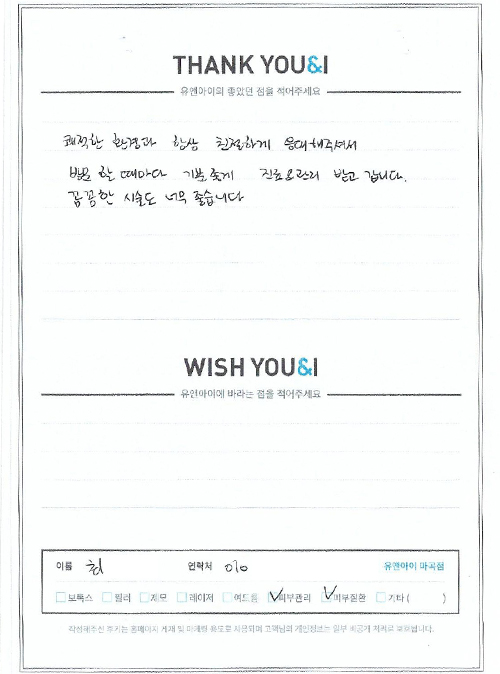 THANK YOU&I
유앤아이의 좋았던 점을 적어주세요
쾌적한 환경과 항상 친절하게 응대해주셔서
방문 할 때마다 기분좋게 진료&관리 받고 갑니다.
꼼꼼한 시술도 너무 좋습니다
WISH YOU&I
유앤아이에 바라는 점을 적어주세요
이름 최 연락처 010 유앤아이 마곡점
보톡스 필러 제모 레이저 여드름 피부관리 피부질환 기타 ( )
작성해주신 후기는 홈페이지 게재 및 마케팅 용도로 사용되며 고객님의 개인정보는 일부 비공개 처리로 보호됩니다.